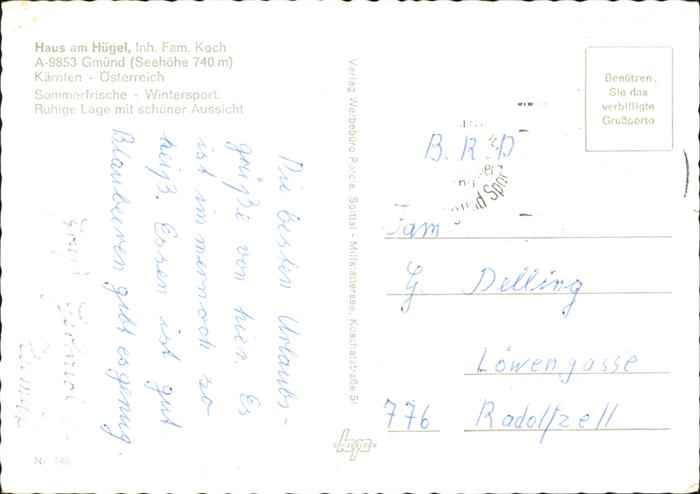 Haus am Hügel, Inh. Fam. Koch
A-9853 Gmünd (Seehöhe 740 m)
Kärnten - Österreich
Sommerfrische - Wintersport.
Ruhige Lage mit schöner Aussicht
Die besten Urlaubs-
grüße von hier. Es
ist immernoch so
heiß. Essen ist gut.
Blaubeeren gibt es genug.
Nr. 246
Verlag Werbebüro Porcia, Spittal - Millstättersee, Koschatstraße 51
Benützen
Sie das
verbilligte
Grußporto
B. R. D
Fam
G. Delling
Löwengasse
776 Radolfzell